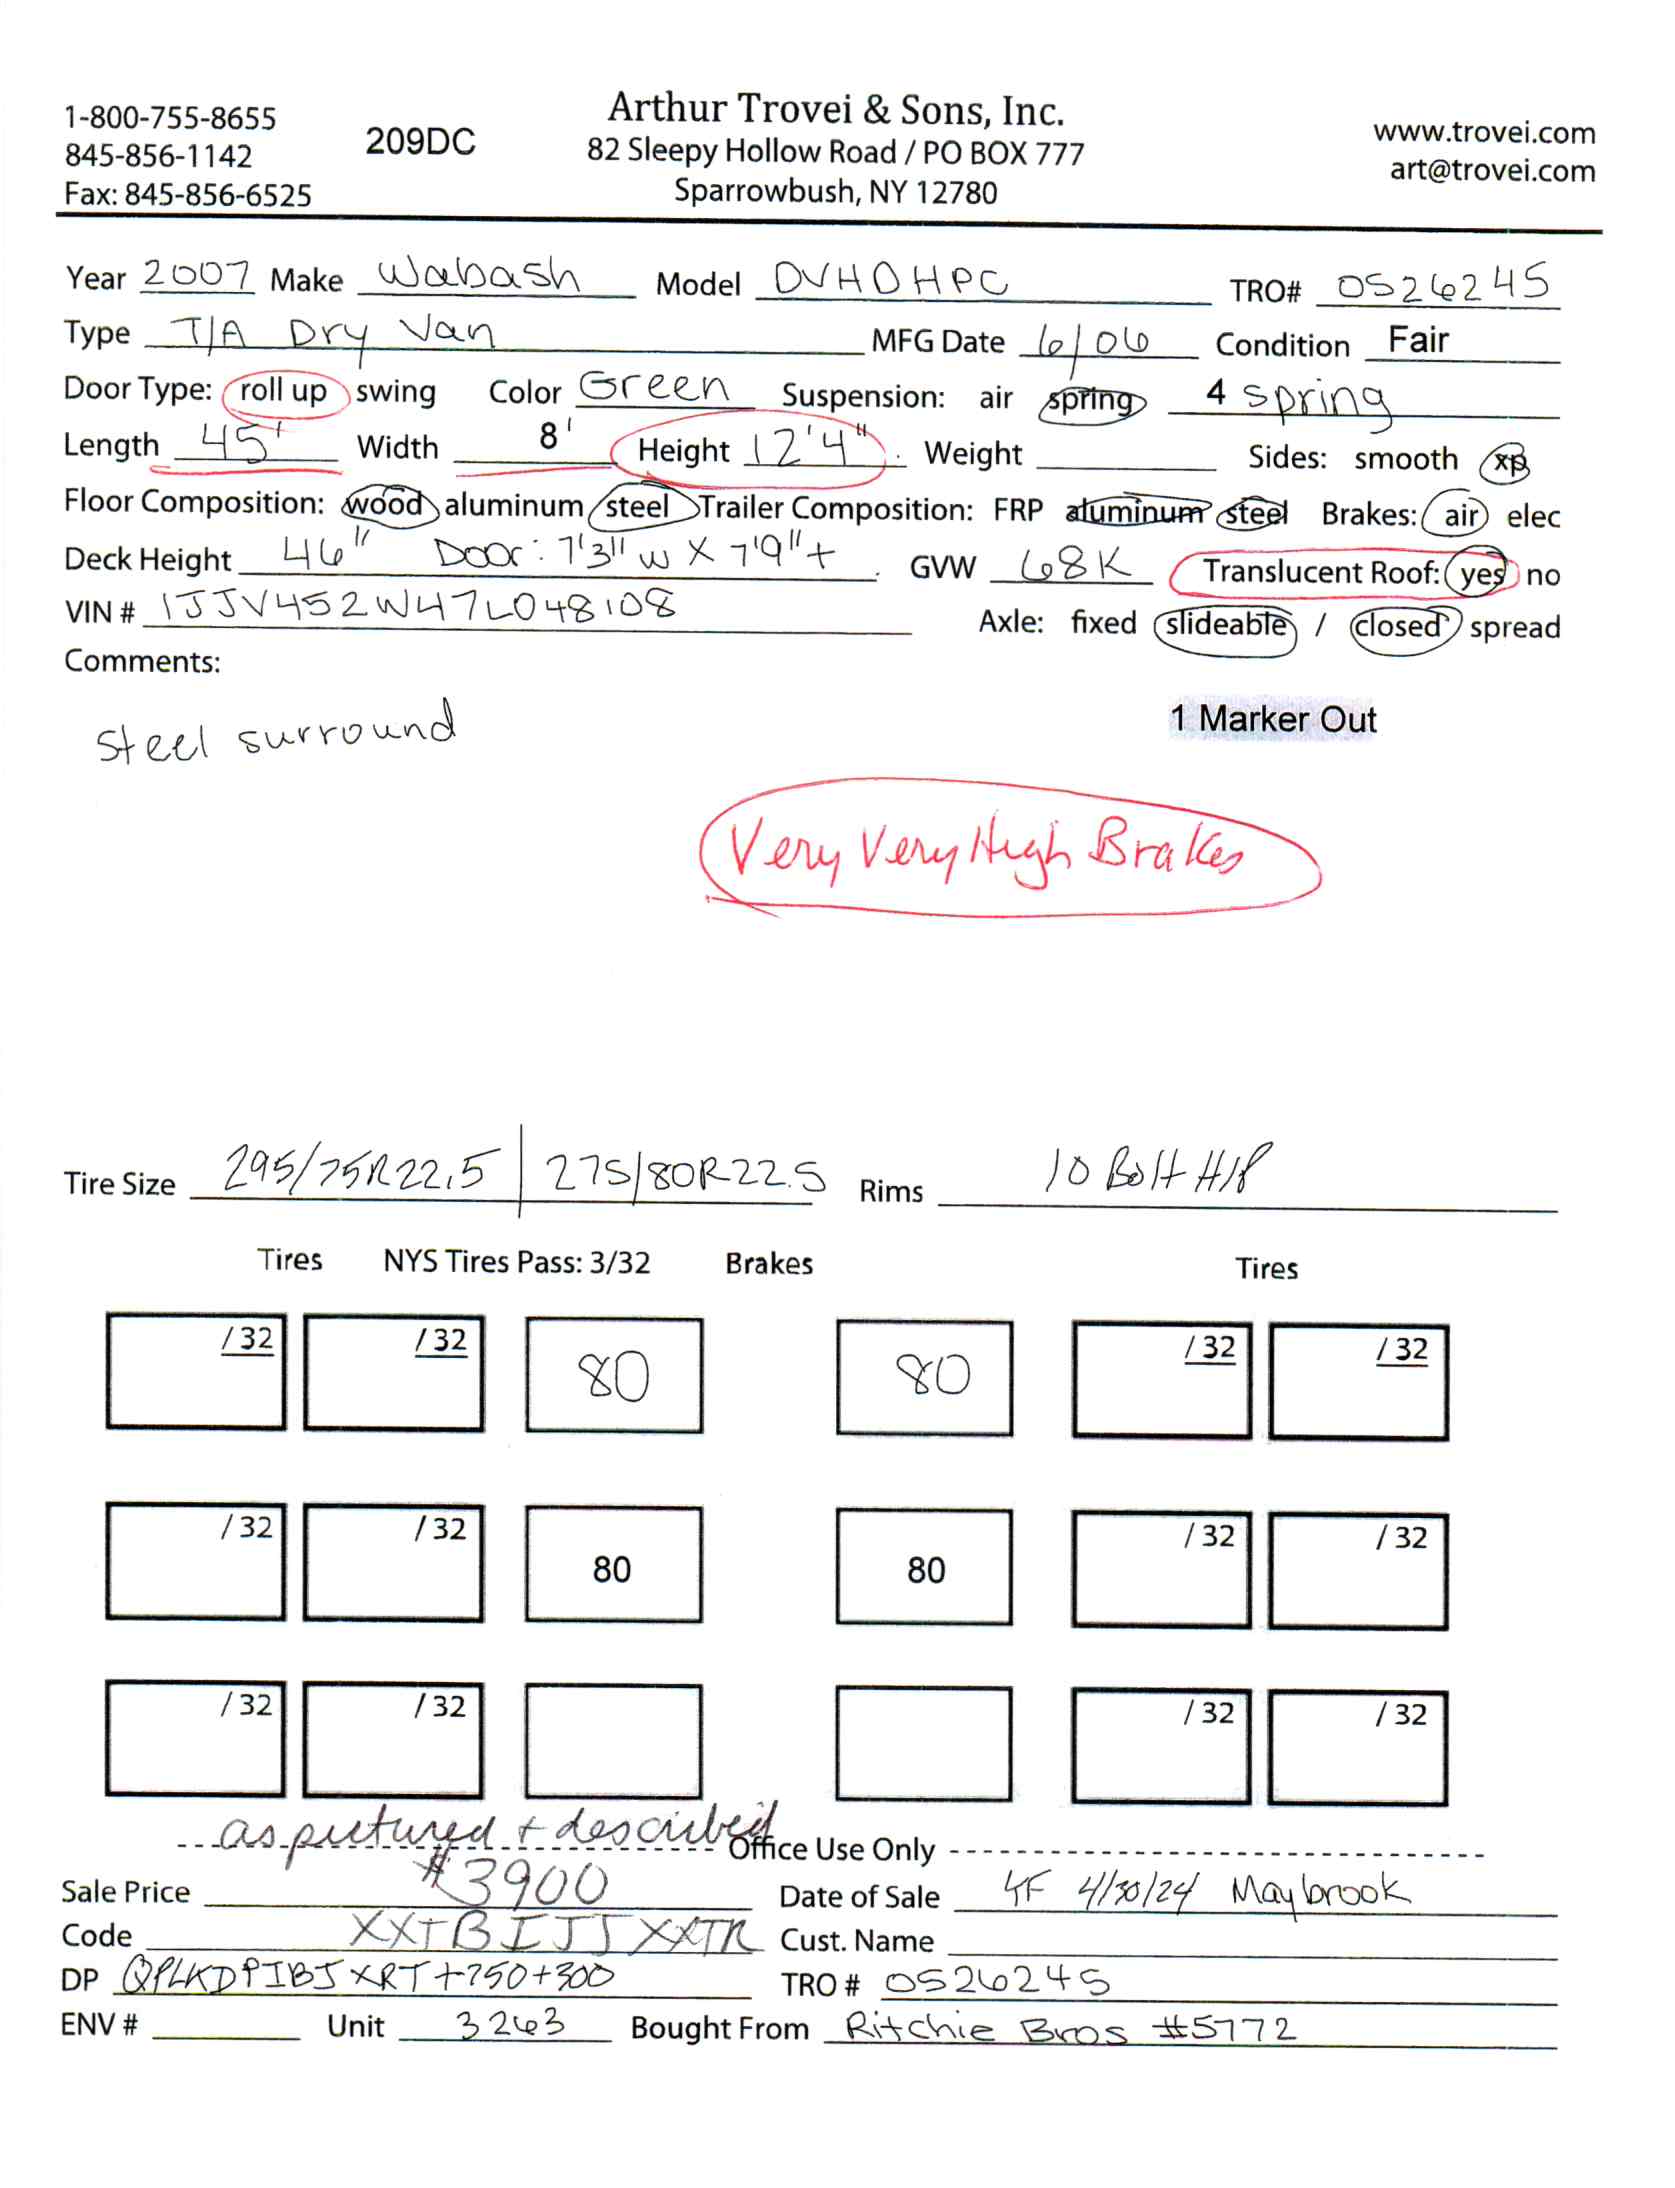 1-800-755-8655
845-856-1142
Fax: 845-856-6525
209DC
Arthur Trovei & Sons, Inc.
82 Sleepy Hollow Road / PO BOX 777
Sparrowbush, NY 12780
www.trovei.com
art@trovei.com
Year 2007 Make Wabash Model DVHDHPC TRO# 0526245
Type T/A Dry Van MFG Date 6/06 Condition Fair
Door Type: roll up swing Color Green Suspension: air spring 4 spring
Length 45' Width 8' Height 12'4" Weight Sides: smooth xp
Floor Composition: wood aluminum steel Trailer Composition: FRP aluminum steel Brakes: air elec
Deck Height 46" Door: 7'3" w X 7'9"+ GVW 68K Translucent Roof: yes no
VIN # 1JJV452W47L048108 Axle: fixed slideable / closed spread
Comments:
steel surround
1 Marker Out
Very Very High Brakes
Tire Size 295/75R22.5 | 275/80R22.5 Rims 10 Bolt H/P
Tires NYS Tires Pass: 3/32 Brakes Tires
/ 32 / 32 80 80 / 32 / 32
/ 32 / 32 80 80 / 32 / 32
/ 32 / 32 / 32 / 32
as pictured + described Office Use Only
Sale Price $3900 Date of Sale 4/30/24 Maybrook
Code XXTBIJJXXTR Cust. Name
DP QPLKDPIBJXRT+750+300 TRO # 0526245
ENV # Unit 3263 Bought From Ritchie Bros #5772